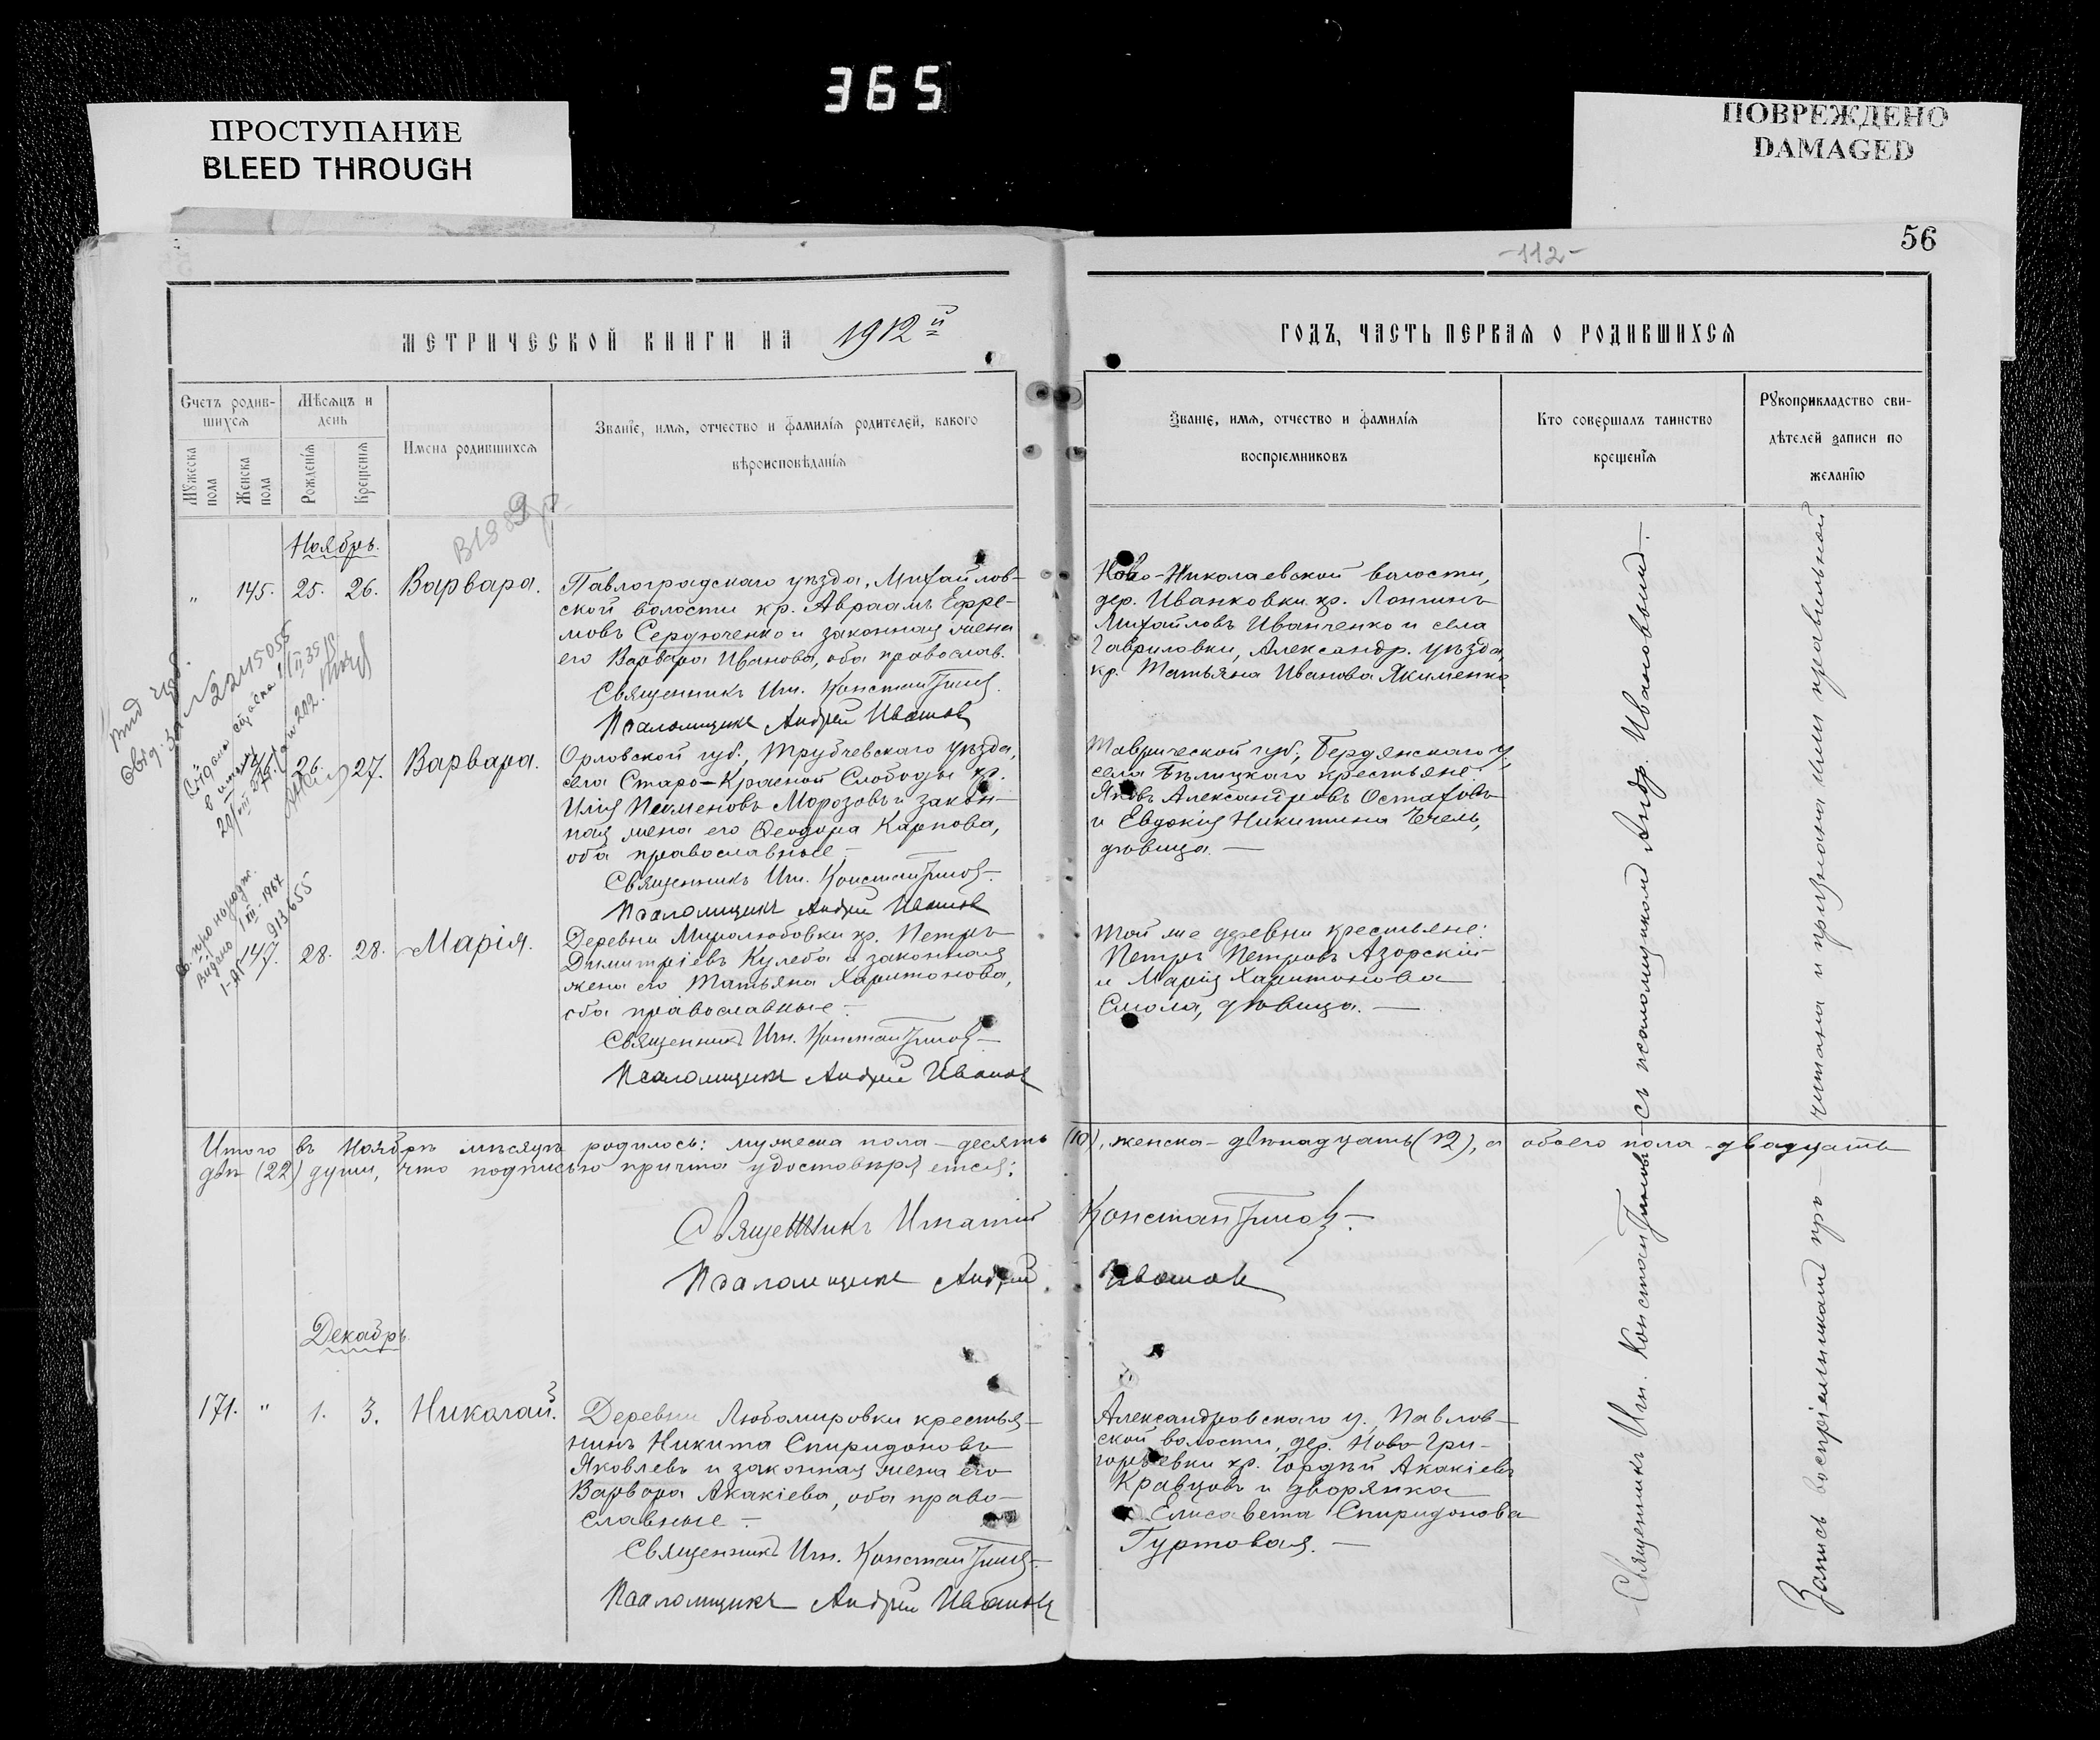 365
ПРОСТУПАНИЕ
BLEED THROUGH
ПОВРЕЖДЕНО
DAMAGED
56
-112-
МЕТРИЧЕСКОЙ КНИГИ НА 1912й
ГОДЪ, ЧАСТЬ ПЕРВАЯ О РОДИВШИХСЯ
Счетъ родив-
шихся
Мѣсяцъ и
день
Мужеска
пола
Женска
пола
Рожденія
Крещенія
Имена родившихся
Званіе, имя, отчество и фамилія родителей, какого
вѣроисповѣданія
Званіе, имя, отчество и фамилія
воспріемниковъ
Кто совершалъ таинство
крещенія
Рукоприкладство сви-
дѣтелей записи по
желанію
Ноябрь.
" 145. 25. 26. Варвара.
Павлоградскаго уѣзда, Михайлов-
ской волости кр. Авраамъ Ефре-
мовъ Сердюченко и законная жена
его Варвара Иванова, оба православ.
Священникъ Игн. Константиновъ
Псаломщикъ Андрей Ивановъ
Ново-Николаевской волости,
дер. Иванковки кр. Лонгинъ
Михайловъ Иванченко и села
Гавриловки, Александр. уѣзда,
кр. Татьяна Иванова Якименко
26. 27. Варвара.
Орловской губ., Трубчевскаго уѣзда,
села Старо-Красной Слободы кр.
Илія Пименовъ Морозовъ и закон-
ная жена его Ѳеодора Карпова,
оба православные.
Священникъ Игн. Константиновъ
Псаломщикъ Андрей Ивановъ
Таврической губ., Бердянскаго у.,
села Бѣлицкаго крестьяне:
Яковъ Александровъ Остаховъ
и Евдокія Никитина
дѣвица.
147. 28. 28. Марія.
Деревни Миролюбовки кр. Петръ
Димитріевъ Кулеба и законная
жена его Татьяна Харитонова,
оба православные.
Священникъ Игн. Константиновъ
Псаломщикъ Андрей Ивановъ
Той же деревни крестьяне:
Петръ Петровъ Азорскій
и Марія Харитонова
Смола, дѣвица.
Итого въ Ноябрѣ мѣсяцѣ родилось: мужеска пола - десять (10), женска - двѣнадцать (12), а обоего пола - двадцать
двѣ (22) души, что подписью причта удостовѣряется:
Священникъ Игнатій Константиновъ
Псаломщикъ Андрей Ивановъ
Декабрь.
171. " 1. 3. Николай.
Деревни Любомировки крестья-
нинъ Никита Спиридоновъ
Яковлевъ и законная жена его
Варвара Акакіева, оба право-
славные.
Священникъ Игн. Константиновъ
Псаломщикъ Андрей Ивановъ
Александровскаго у. Павлов-
ской волости, дер. Ново-Гри-
горьевки кр. Гордѣй Акакіевъ
Кравцовъ и дворянка
Елисавета Спиридонова
Гуртовая.
Священникъ Игн. Константиновъ съ псаломщикомъ Андр. Ивановымъ.
Запись воспріемниками про-читана и признана ими правильной